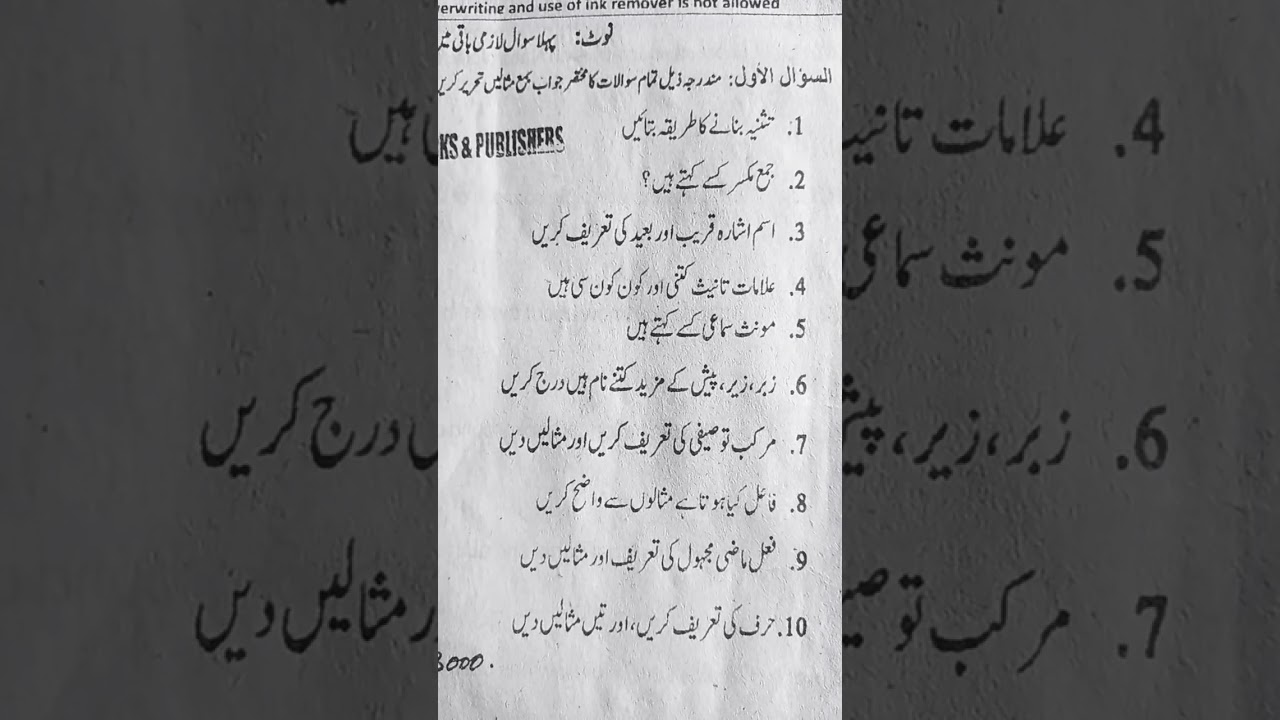 verwriting and use of ink remover is not allowed
نوٹ: پہلا سوال لازمی باقی میں
السؤال الأول: مندرجہ ذیل تمام سوالات کا مختصر جواب بمع مثالیں تحریر کریں
1. تثنیہ بنانے کا طریقہ بتائیں
KS & PUBLISHERS
2. جمع مکسر کسے کہتے ہیں؟
3. اسم اشارہ قریب اور بعید کی تعریف کریں
4. علامات تانیث کتنی اور کون کون سی ہیں
5. مونث سماعی کسے کہتے ہیں
6. زبر، زیر، پیش کے مزید کتنے نام ہیں درج کریں
7. مرکب توصیفی کی تعریف کریں اور مثالیں دیں
8. فاعل کیا ہوتا ہے مثالوں سے واضح کریں
9. فعل ماضی مجہول کی تعریف اور مثالیں دیں
10. حرف کی تعریف کریں، اور تین مثالیں دیں
3000.